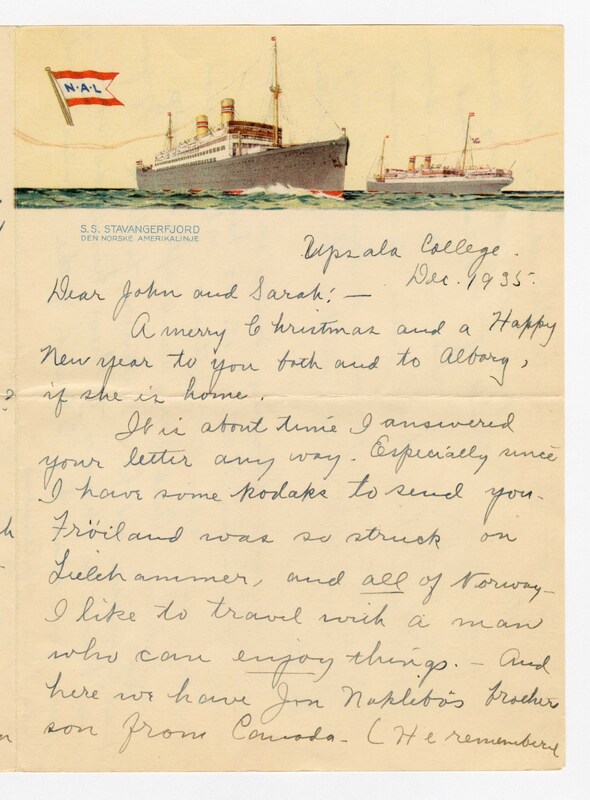 N·A·L
S.S. STAVANGERFJORD
DEN NORSKE AMERIKALINJE
Upsala College.
Dec. 1935.
Dear John and Sarah! —
A merry Christmas and a Happy
New year to you both and to Alborg,
if she is home.
It is about time I answered
your letter any way. Especially since
I have some kodaks to send you.
Fröiland was so struck on
Lielehammer, and all of Norway—
I like to travel with a man
who can enjoy things. — And
here we have Jon brother
son from Canada. (He